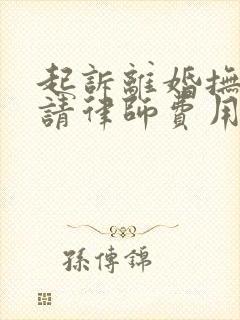 起訴離婚撫
請律師費用
孫傳錦